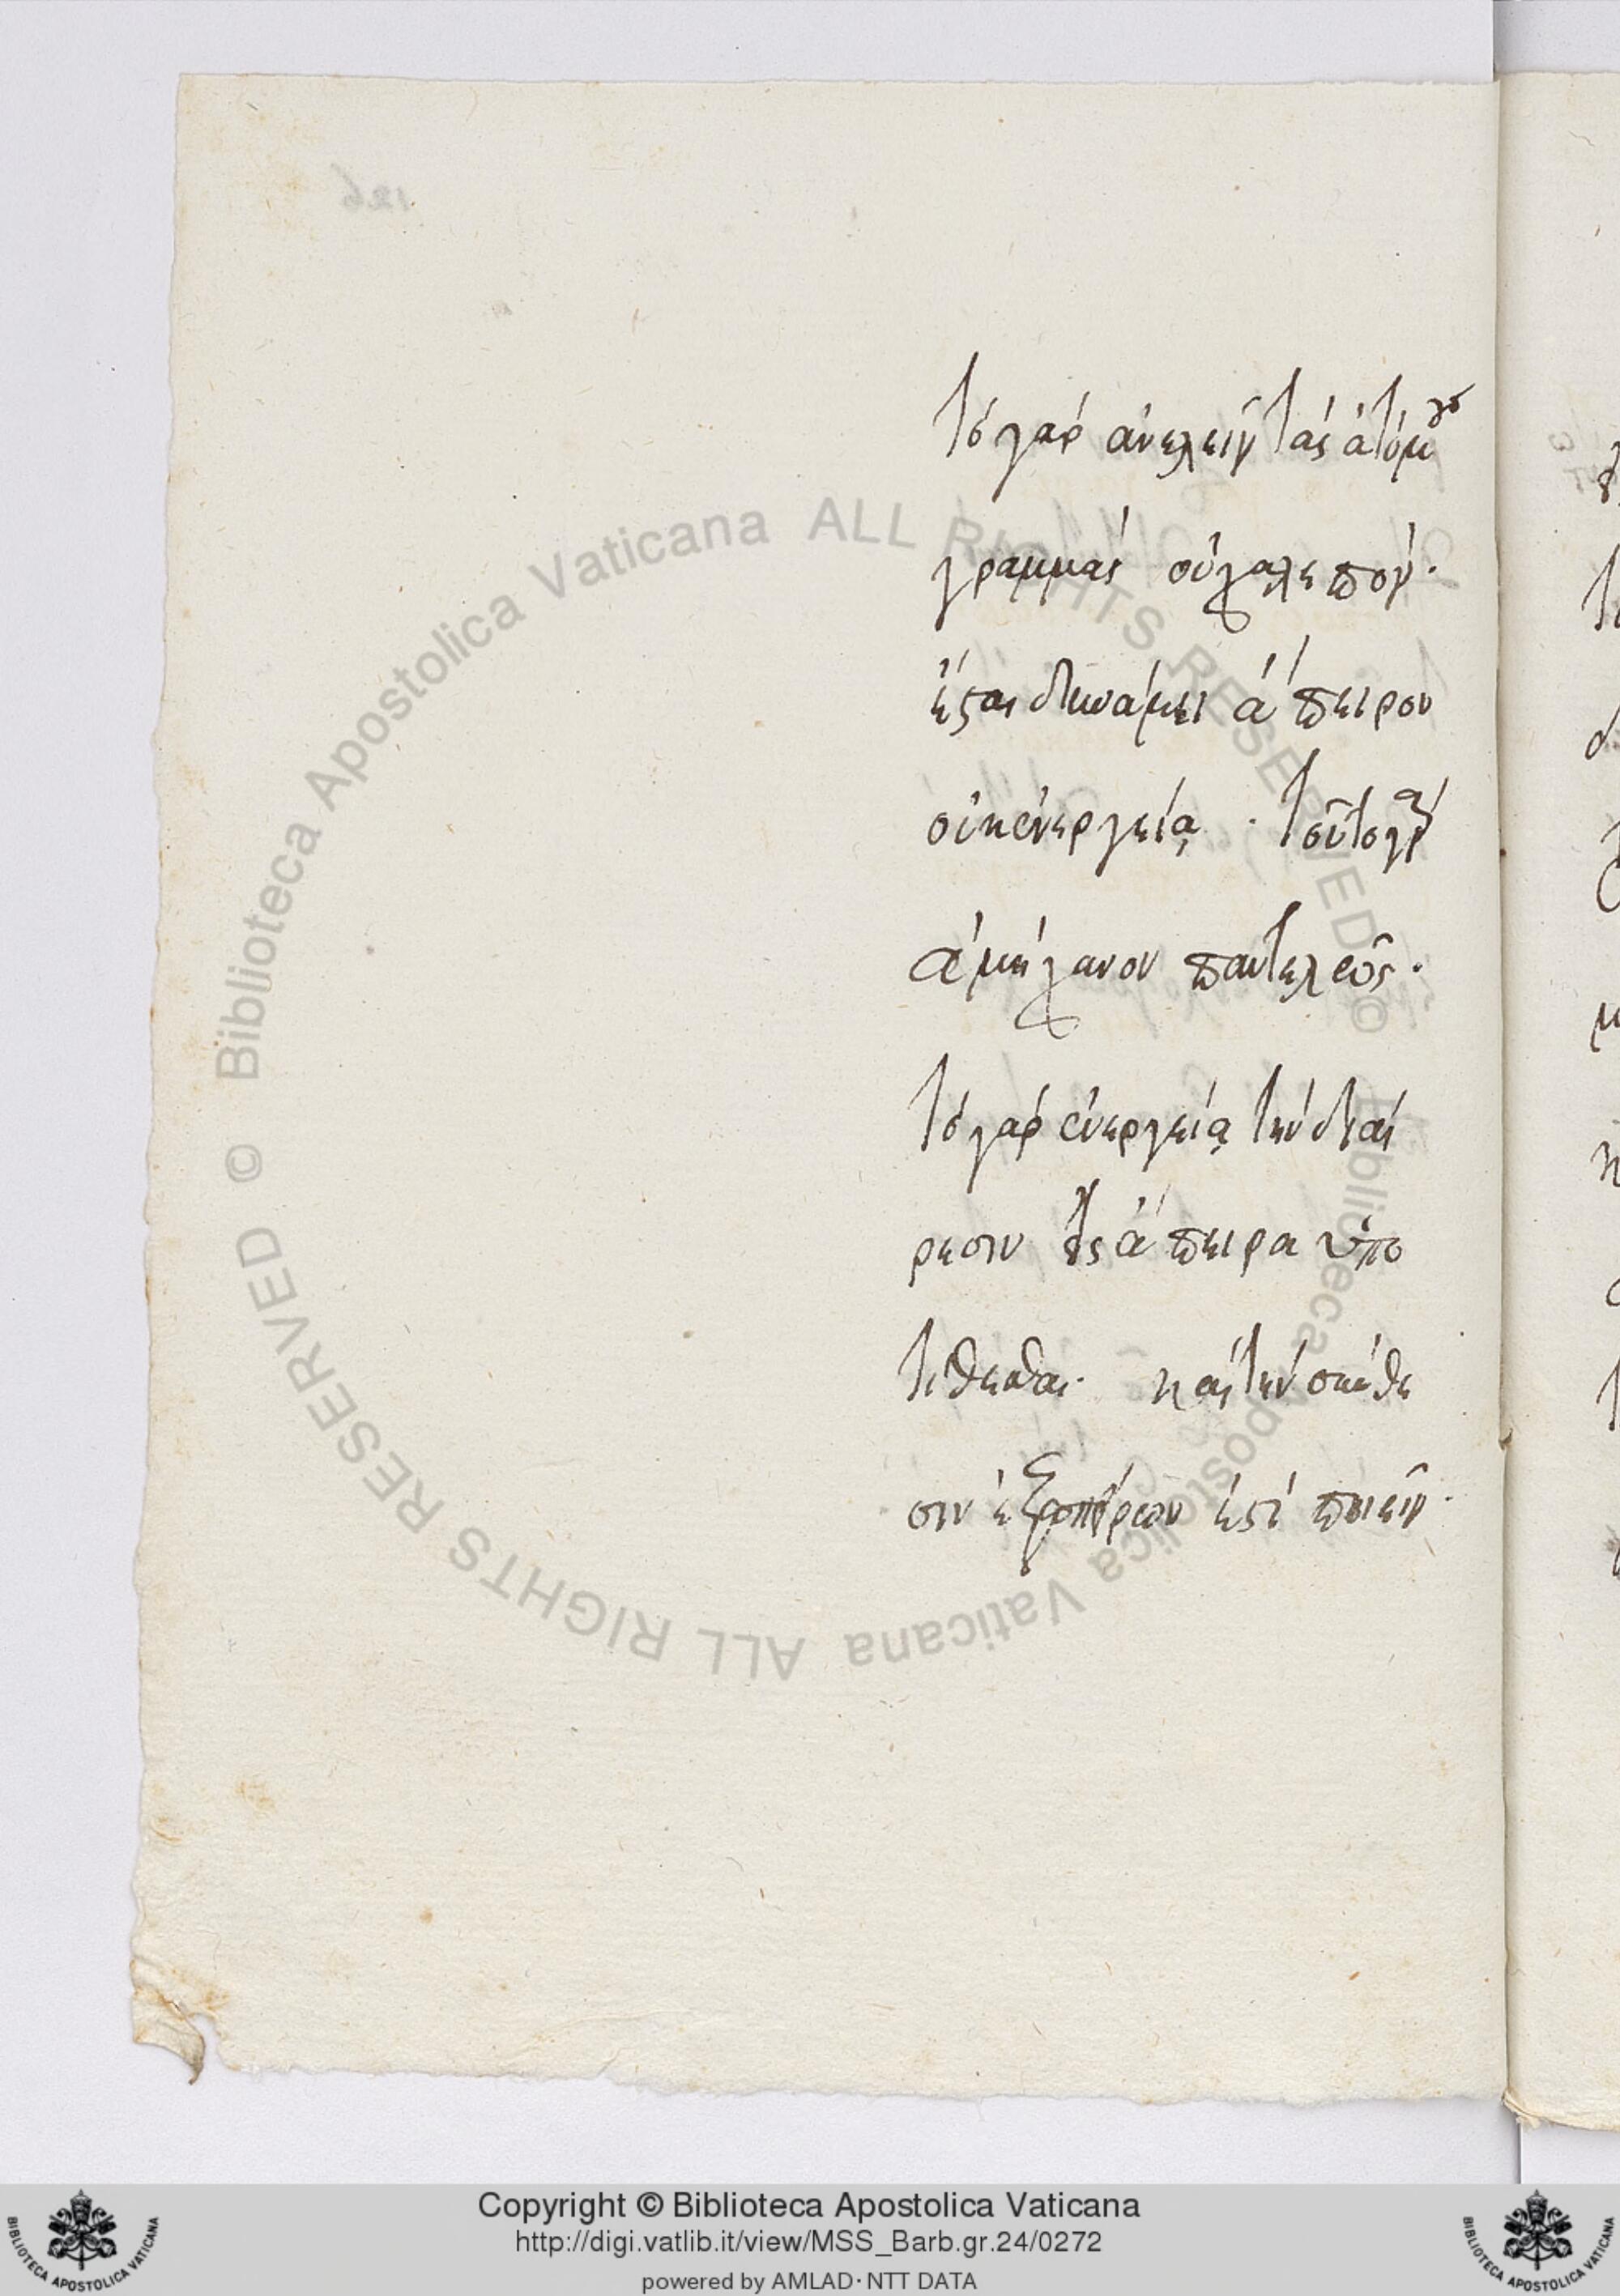 τὸ γὰρ ἀνελεῖν τὰς ἀτόμους
γραμμὰς οὐ χαλεπὸν·
ἔσται δυνάμει ἄπειρον
οὐκ ἐνεργείᾳ · τοῦτο γὰρ
ἀμήχανον παντελῶς·
τὸ γὰρ ἐνεργείᾳ τὴν διαί
ρεσιν ἄπειρα ὑπο
τίθεσθαι· καὶ τὴν σύνθε
σιν ἐξ ἀπείρων ἐστὶ ποιεῖν·
© Biblioteca Apostolica Vaticana ALL RIGHTS RESERVED © Biblioteca Apostolica Vaticana ALL RIGHTS RESERVED
Copyright © Biblioteca Apostolica Vaticana
http://digi.vatlib.it/view/MSS_Barb.gr.24/0272
powered by AMLAD·NTT DATA
BIBLIOTECA APOSTOLICA VATICANA
BIBLIOTECA APOSTOLICA VATICANA